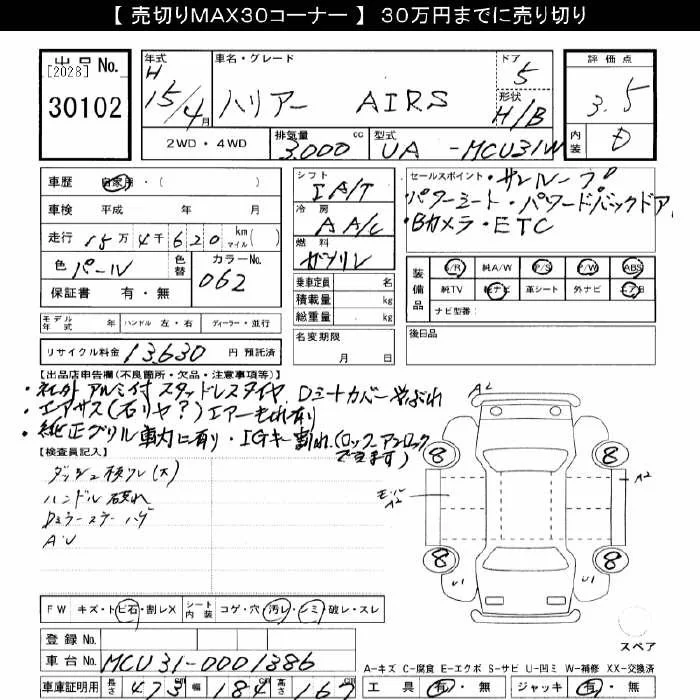 【 売切りMAX30コーナー 】 30万円までに売り切り
出品No.
[2028]
30102
年式 H 15/4月
車名・グレード ハリアー AIRS
ドア 5
形状 H/B
評価点 3.5
内装 D
2WD・4WD
排気量 3.000 cc
型式 UA -MCU31W
車歴 自家用・( )
車検 平成 年 月
走行 15万4千620 km マイル( )
色 パール 色替 カラーNo. 062
保証書 有・無
シフト IA/T
冷房 AA/C
燃料 ガソリン
乗車定員 名
積載量 kg
総重量 kg
名変期限 月 日
セールスポイント・サンルーフ
・パワーシート・パワードバックドア
・Bカメラ・ETC
装備品 S/R 純A/W P/S P/W ABS
純TV 純ナビ 革シート 外ナビ エアB
ナビ型番:
後日品
モデル年式 年 ハンドル 左・右 ディーラー・並行
リサイクル料金 13630 円 預託済
【出品店申告欄(不良箇所・欠品・注意事項等)】
・社外アルミ付スタッドレスタイヤ Dシートカバーやぶれ
・エアサス(右リヤ?)エアーもれ有り
・純正グリル車内に有り・IGキー割れ(ロックアンロックできます)
【検査員記入】
ダッシュ
ハンドル破れ
Dミラー
A・U
A2
8
8
A2
A2
8
8
U1
U1
FW キズ・トビ石・割レX シート内装 コゲ・穴・汚レ・シミ・破レ・スレ
スペア
登録No.
車台No. MCU31-0001386
A-キズ C-腐食 E-エクボ S-サビ U-凹ミ W-補修 XX-交換済
車庫証明用 長さ 473 幅 184 高さ 167
工具 有・無 ジャッキ 有・無